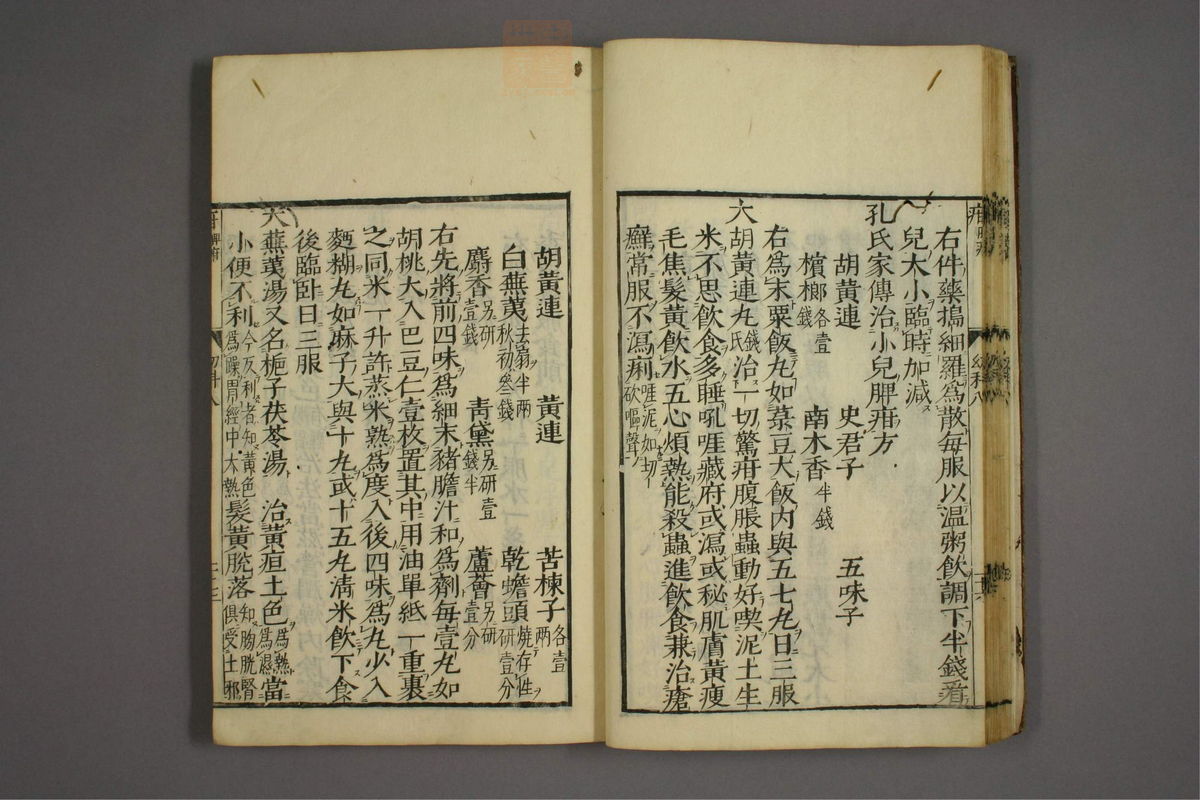 右件藥擣細羅爲散每服以温粥飲調下半錢看
兒大小臨時加減
孔氏家傳治小兒脾疳方
胡黃連 史君子 五味子
檳榔各壹錢 南木香半錢
右爲末粟飯丸如菉豆大飯内與五七丸日三服
大胡黃連丸錢氏治一切驚疳腹脹蟲動好喫泥土生
米不思飲食多睡吼啀藏府或瀉或秘肌膚黃瘦
毛焦髮黃飲水五心煩熱能殺蟲進飲食兼治瘡
癬常服不瀉痢啀泥如切砍嘔聲
胡黃連 黃連 苦楝子各壹兩
白蕪荑去扇半兩秋初叁錢 乾蟾頭燒存性另研壹分
麝香另研壹錢 青黛另研壹錢半 蘆薈另研壹分
右先將前四味爲細末豬膽汁和爲劑每壹丸如
胡桃大入巴豆仁壹枚置其中用油單紙一重裹
之同米一升許蒸米熟爲度入後四味爲丸少入
麵糊丸如麻子大與十丸或十五丸清米飲下食
後臨卧日三服
大蕪荑湯又名梔子茯苓湯 治黃疸土色爲熱爲濕當
小便不利今反利者知黃色爲躁胃經中大熱髮黃脫落知胸胱腎俱受土邪